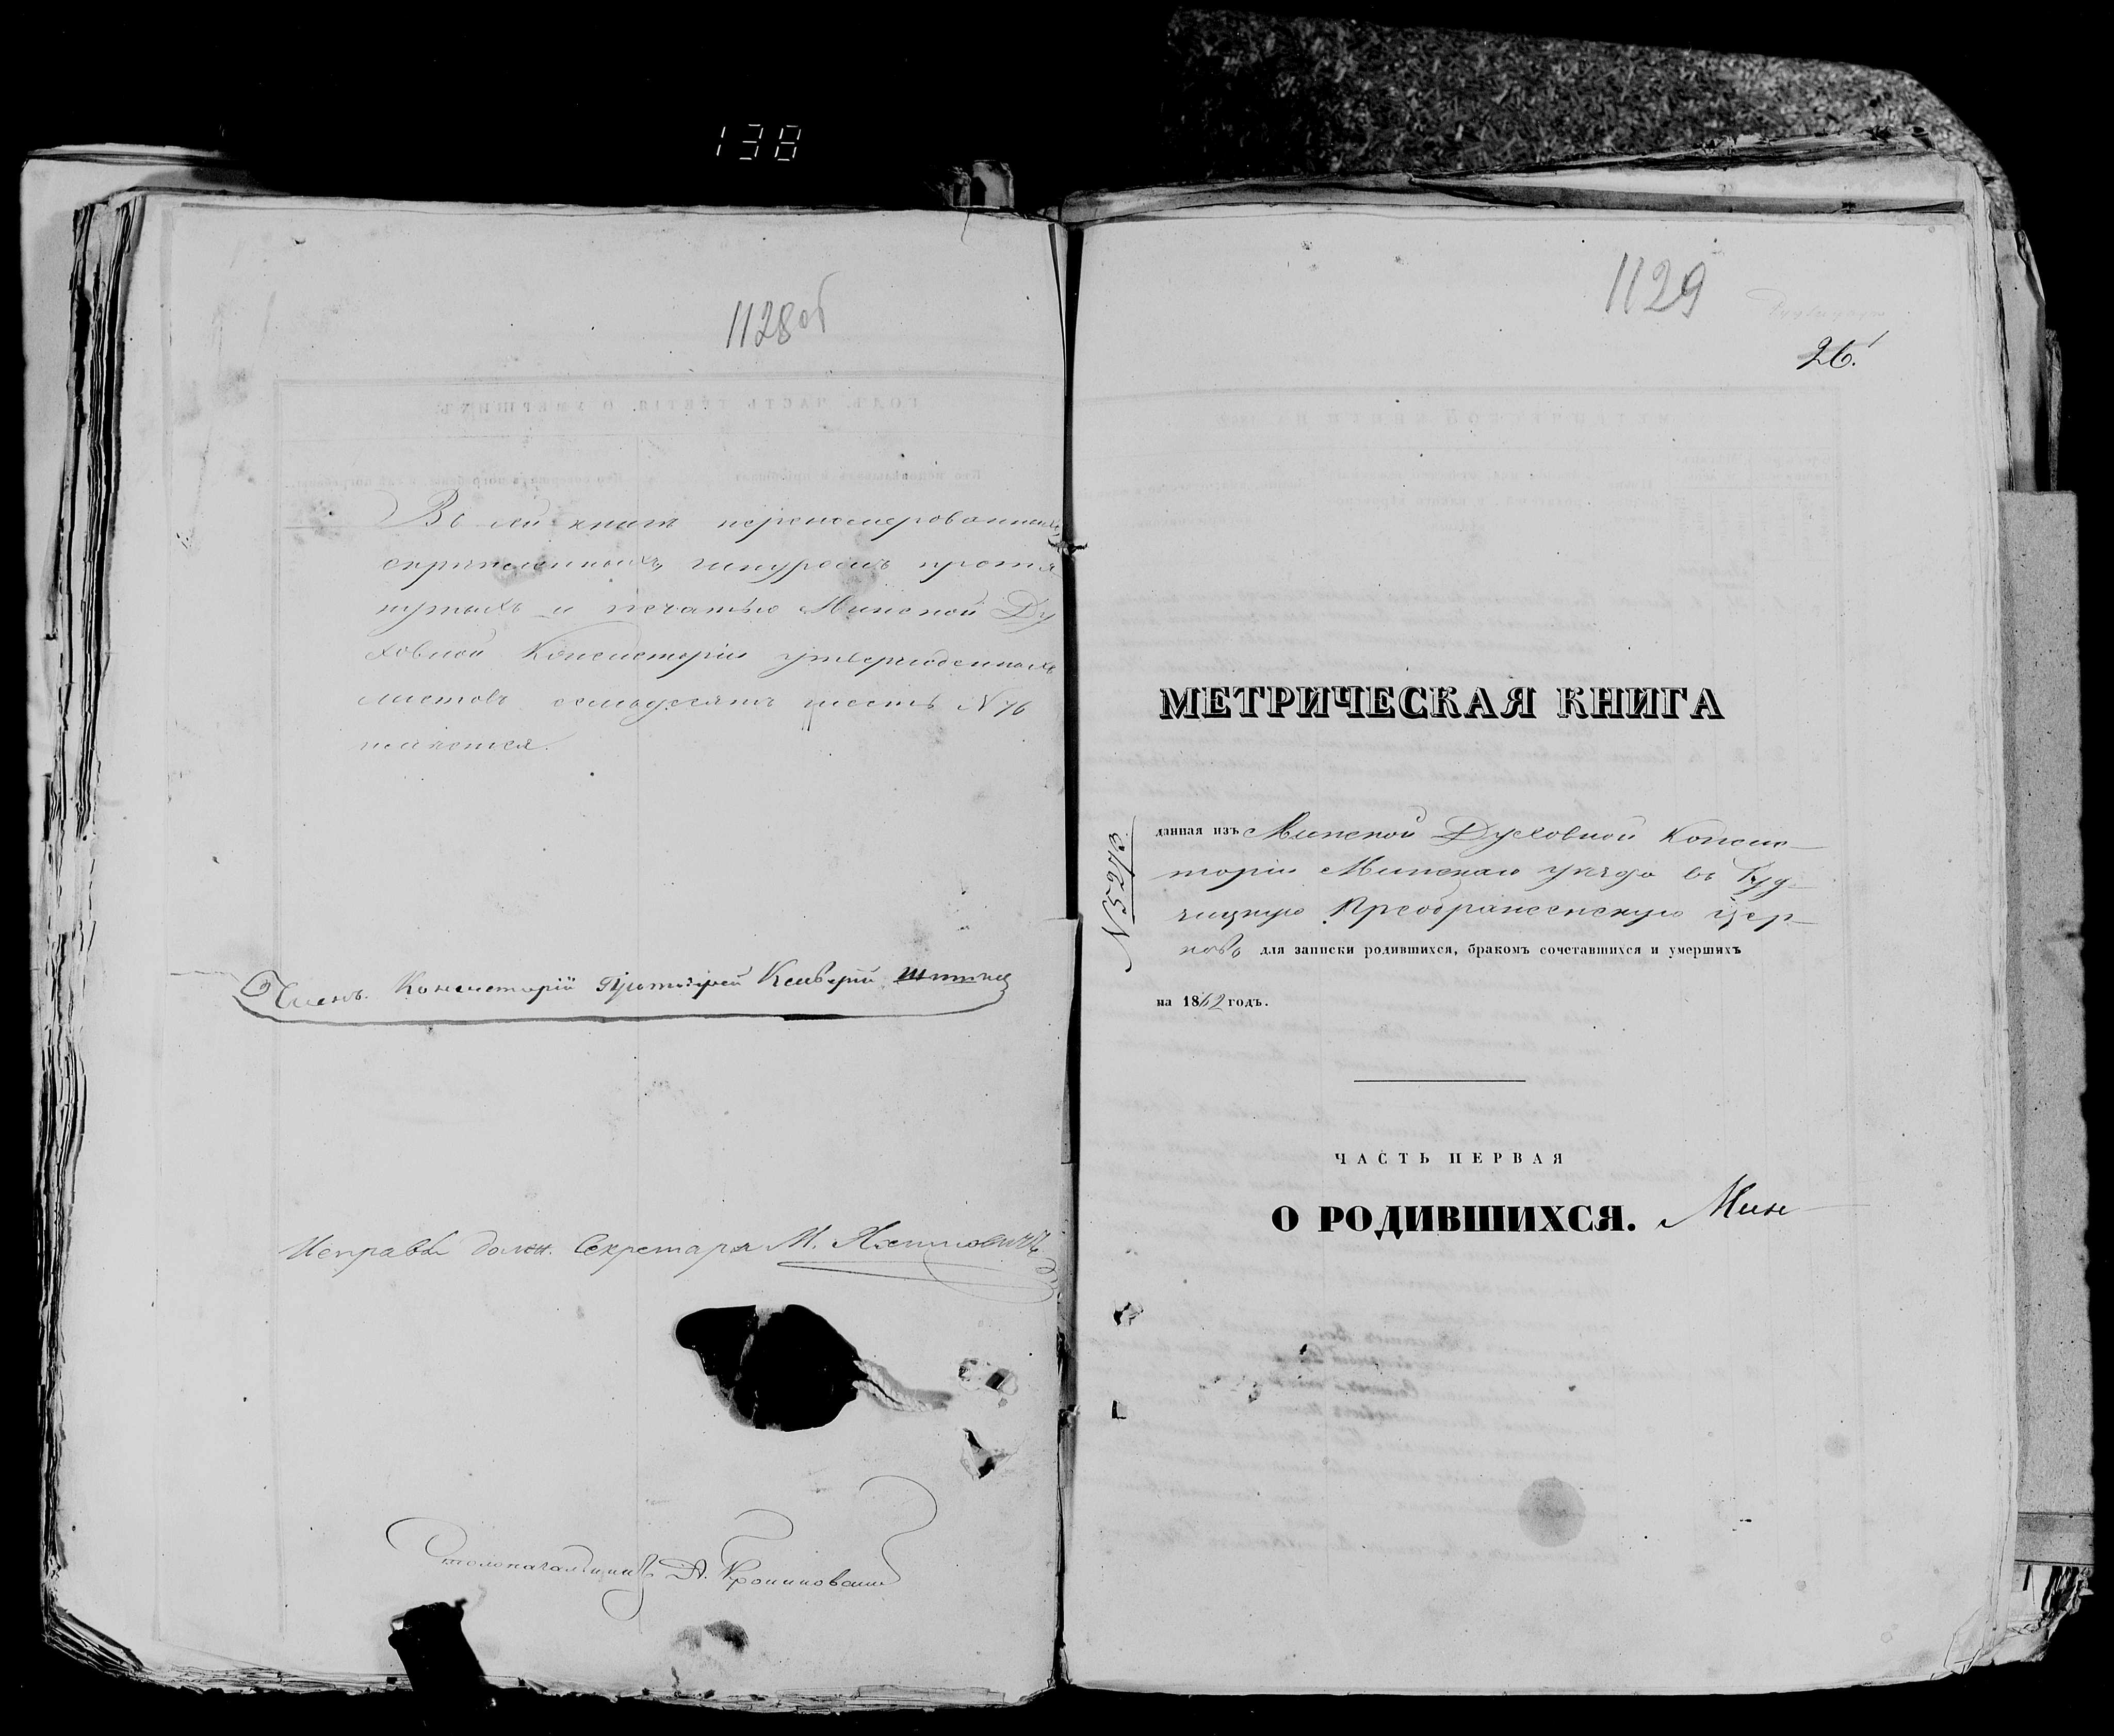 138
1128об
Въ сей книгѣ перенумерованныхъ
скрѣпленныхъ, шнуромъ протя
нутыхъ и печатью Минской Ду
ховной Консисторіи утвержденныхъ
листовъ семьдесятъ шесть N 76
значется.
Членъ Консисторіи Протоіерей
Исправл. должн. Секретаря М.
Столоначальникъ А.
1129
26.
МЕТРИЧЕСКАЯ КНИГА
N 5273
данная изъ Минской Духовной Консис-
торіи Минскаго уѣзда въ Гуд-
чицкую Преображенскую Цер-
ковь для записки родившихся, бракомъ сочетавшихся и умершихъ
на 1862 годъ.
ЧАСТЬ ПЕРВАЯ
О РОДИВШИХСЯ. Мин